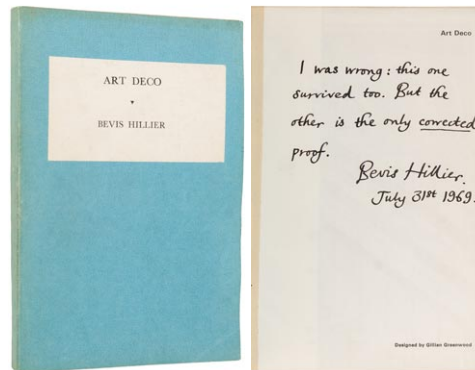 ART DECO
BEVIS HILLIER
Art Deco
I was wrong: this one
survived too. But the
other is the only corrected
proof.
Bevis Hillier.
July 31st 1969.
Designed by Gillian Greenwood